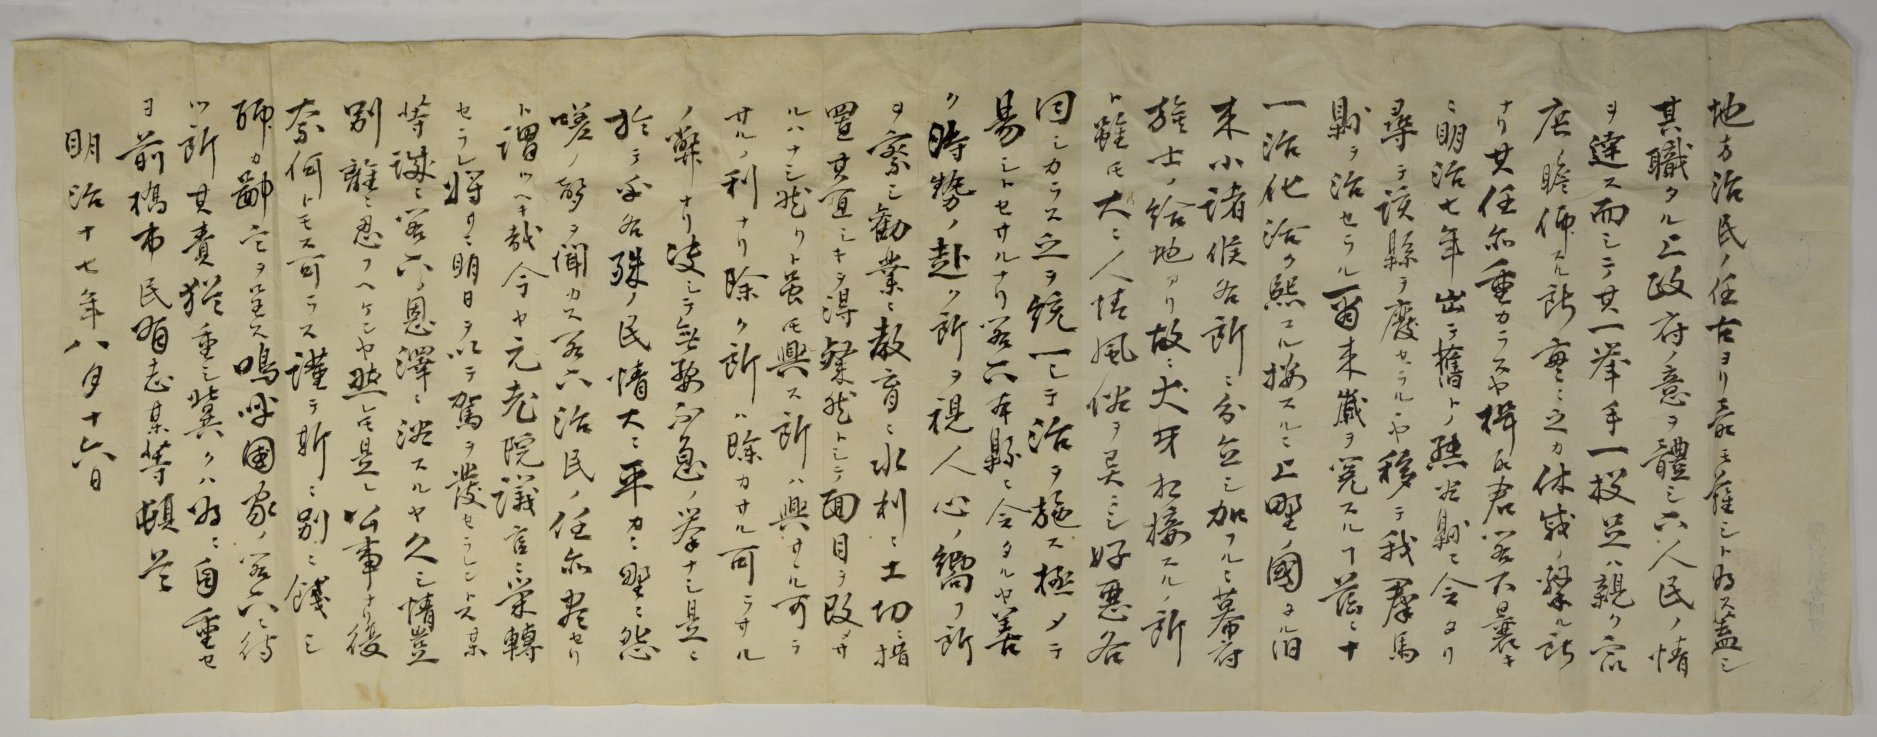 地方治民ノ任古ヨリ素モ難シト为ス蓋シ
其職タル上政府ノ意ヲ體シ下人民ノ情
ヲ達ス而シテ其一挙手一投足ハ親ク衆
庶ノ瞻仰スル所実ニ之カ休戚ノ繋ル所
ナリ其任亦重カラスヤ楫取君閣下曩キ
ニ明治七年出テ舊ト熊谷縣ニ令タリ
尋テ該縣ヲ廢セラルヽヤ移テ我羣馬
縣ヲ治セラル爾来歳ヲ閲スルヿ茲ニ十
一治化洽ク熙スル按スルニ上野ノ國タル旧
来小諸侯各所ニ分立シ加フルニ幕府
旗士ノ給地アリ故ニ犬牙相接スルノ所
ト雖モ大ニ人情風俗ヲ異ニシ好悪各
同シカラス之ヲ統一シテ治ヲ施ス極メテ
易シトセサルナリ閣下本縣ニ令タルヤ善
ク時勢ノ赴ク所ヲ視人心ノ嚮フ所
ヲ察シ勧業ニ教育ニ水利ニ土功ニ措
置其宜シキヲ得粲然トシテ面目ヲ改メサ
ルハナシ然リト雖モ興ス所ハ興サヽル可ラ
サルノ利ナリ除ク所ハ除カサル可ラサル
ノ弊ナリ決シテ無要不急ノ挙ナシ是ニ
於テ乎各殊ノ民情大ニ平カニ野ニ怨
嗟ノ声ヲ聞カス閣下治民ノ任亦盡セリ
ト謂ツヘキ哉今ヤ元老院議官ニ栄轉
セラレ将サニ明日ヲ以テ駕ヲ發セラレントス某
等誠ニ閣下ノ恩澤ニ浴スルヤ久シ情豈
別離ニ忍フヘケンヤ然レトモ是レ公事ナリ復
奈何トモス可ラス謹テ斯ニ別ニ餞シ
聊カ鄙言ヲ呈ス嗚呼國家ノ閣下ニ待
ツ所其責猶重シ冀クハ为ニ自重セ
ヨ前橋市民有志某等頓首
明治十七年八月十六日